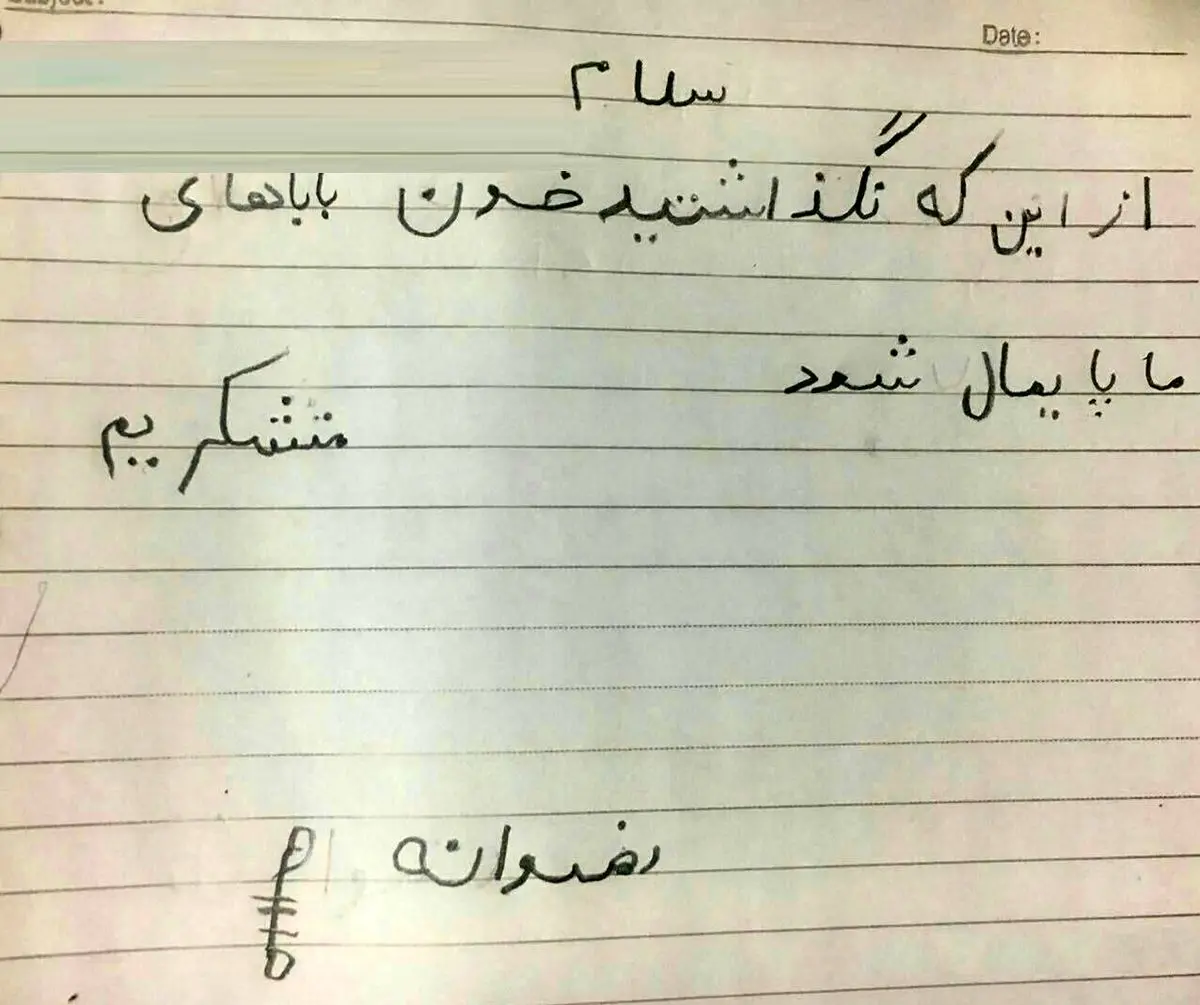 Subject:
Date:
سلام
از این که نگذاشتید خون باباهای
ما پایمال شود
متشکریم
رضوانه